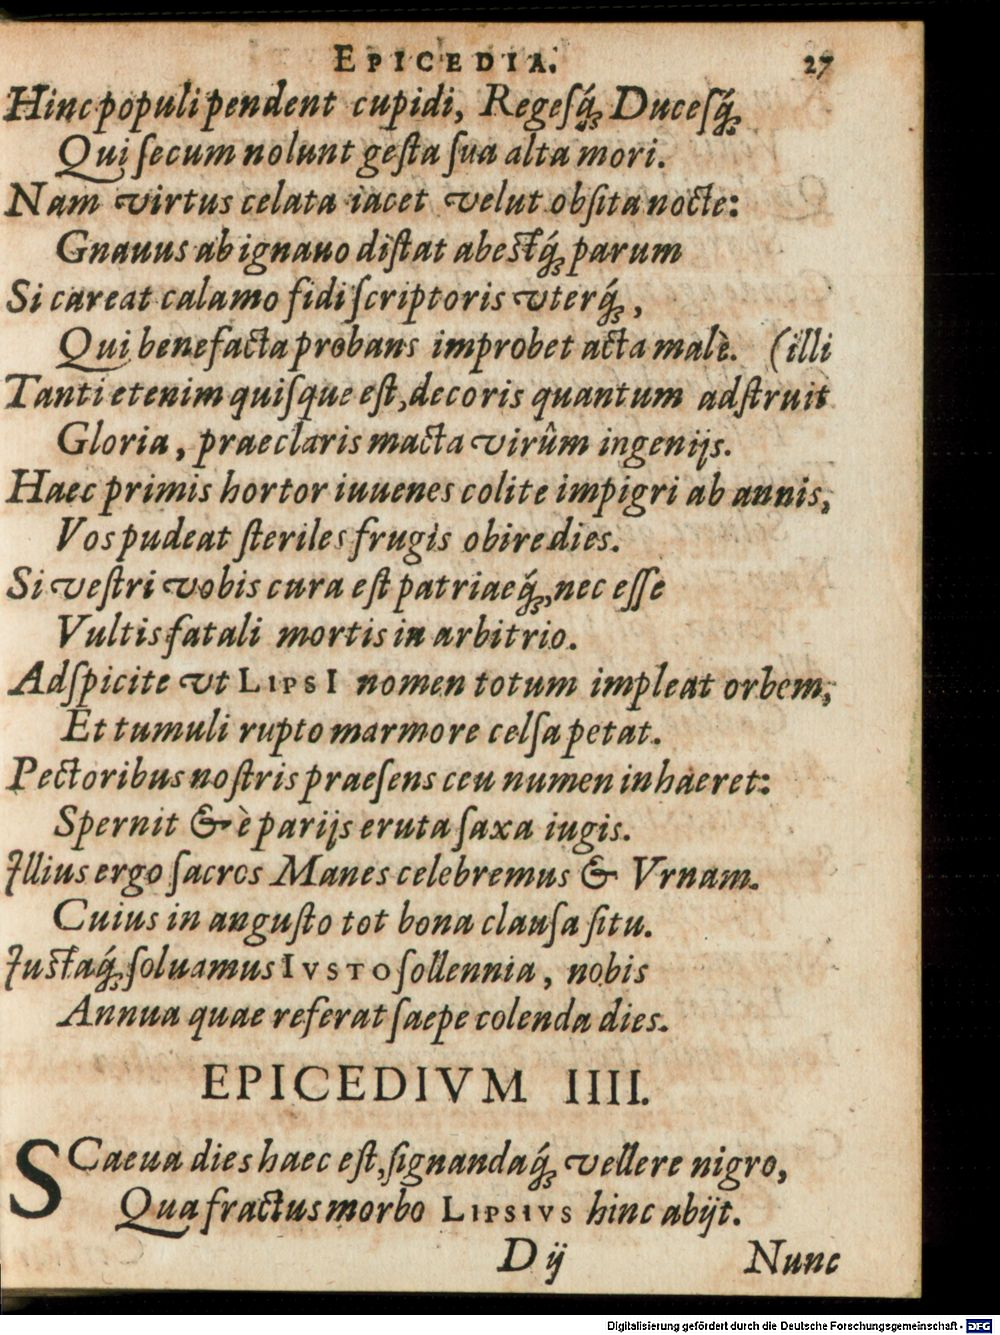 EPICEDIA. 27
Hinc populi pendent cupidi, Regesq́ꝫ Ducesq́ꝫ
Qui secum nolunt gesta sua alta mori.
Nam virtus celata iacet velut obsita nocte:
Gnauus ab ignauo distat abestq́ꝫ parum
Si careat calamo fidi scriptoris vterq́ꝫ,
Qui benefacta probans improbet acta malè. (illi
Tanti etenim quisque est, decoris quantum adstruit
Gloria, praeclaris macta virûm ingenijs.
Haec primis hortor iuuenes colite impigri ab annis,
Vos pudeat steriles frugis obire dies.
Si vestri vobis cura est patriaeq́ꝫ, nec esse
Vultis fatali mortis in arbitrio.
Adspicite vt LIPSI nomen totum impleat orbem,
Et tumuli rupto marmore celsa petat.
Pectoribus nostris praesens ceu numen inhaeret:
Spernit & è parijs eruta saxa iugis.
Illius ergo sacros Manes celebremus & Vrnam.
Cuius in angusto tot bona clausa situ.
Iustaq́ꝫ soluamus IVSTO sollennia, nobis
Annua quae referat saepe colenda dies.
EPICEDIVM IIII.
SCaeua dies haec est, signandaq́ꝫ vellere nigro,
Qua fractus morbo LIPSIVS hinc abijt.
D ij Nunc
Digitalisierung gefördert durch die Deutsche Forschungsgemeinschaft - DFG